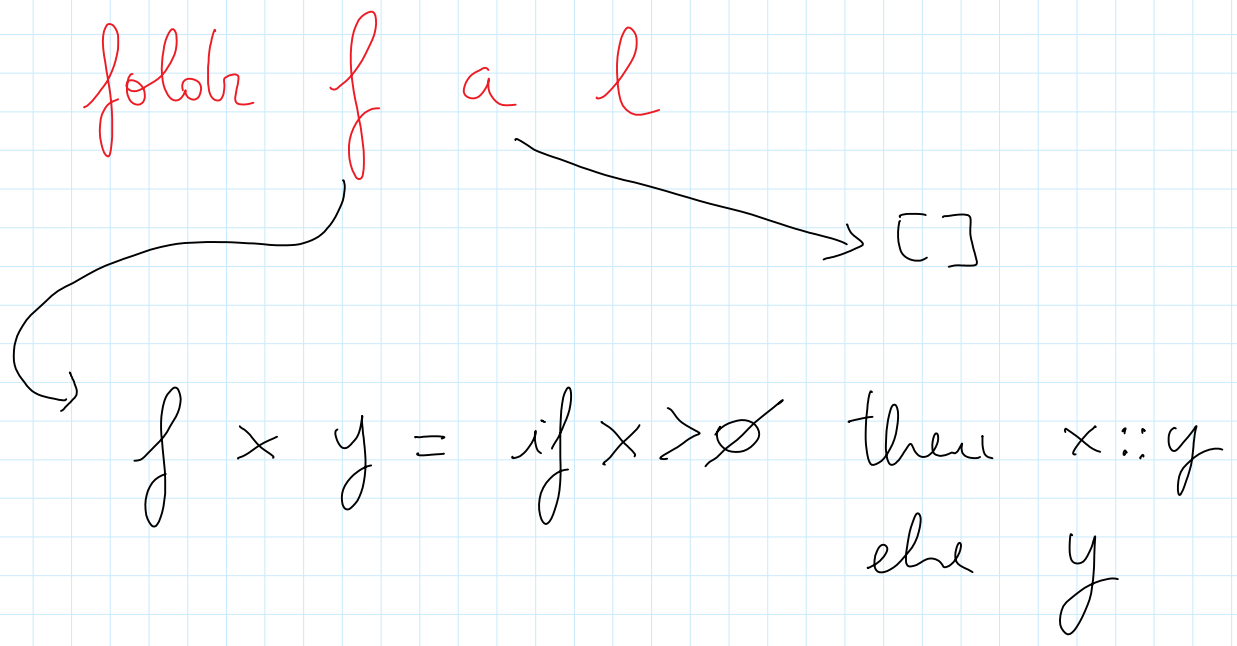 foldr f a l
[]
f x y = if x > 0 then x :: y
else y